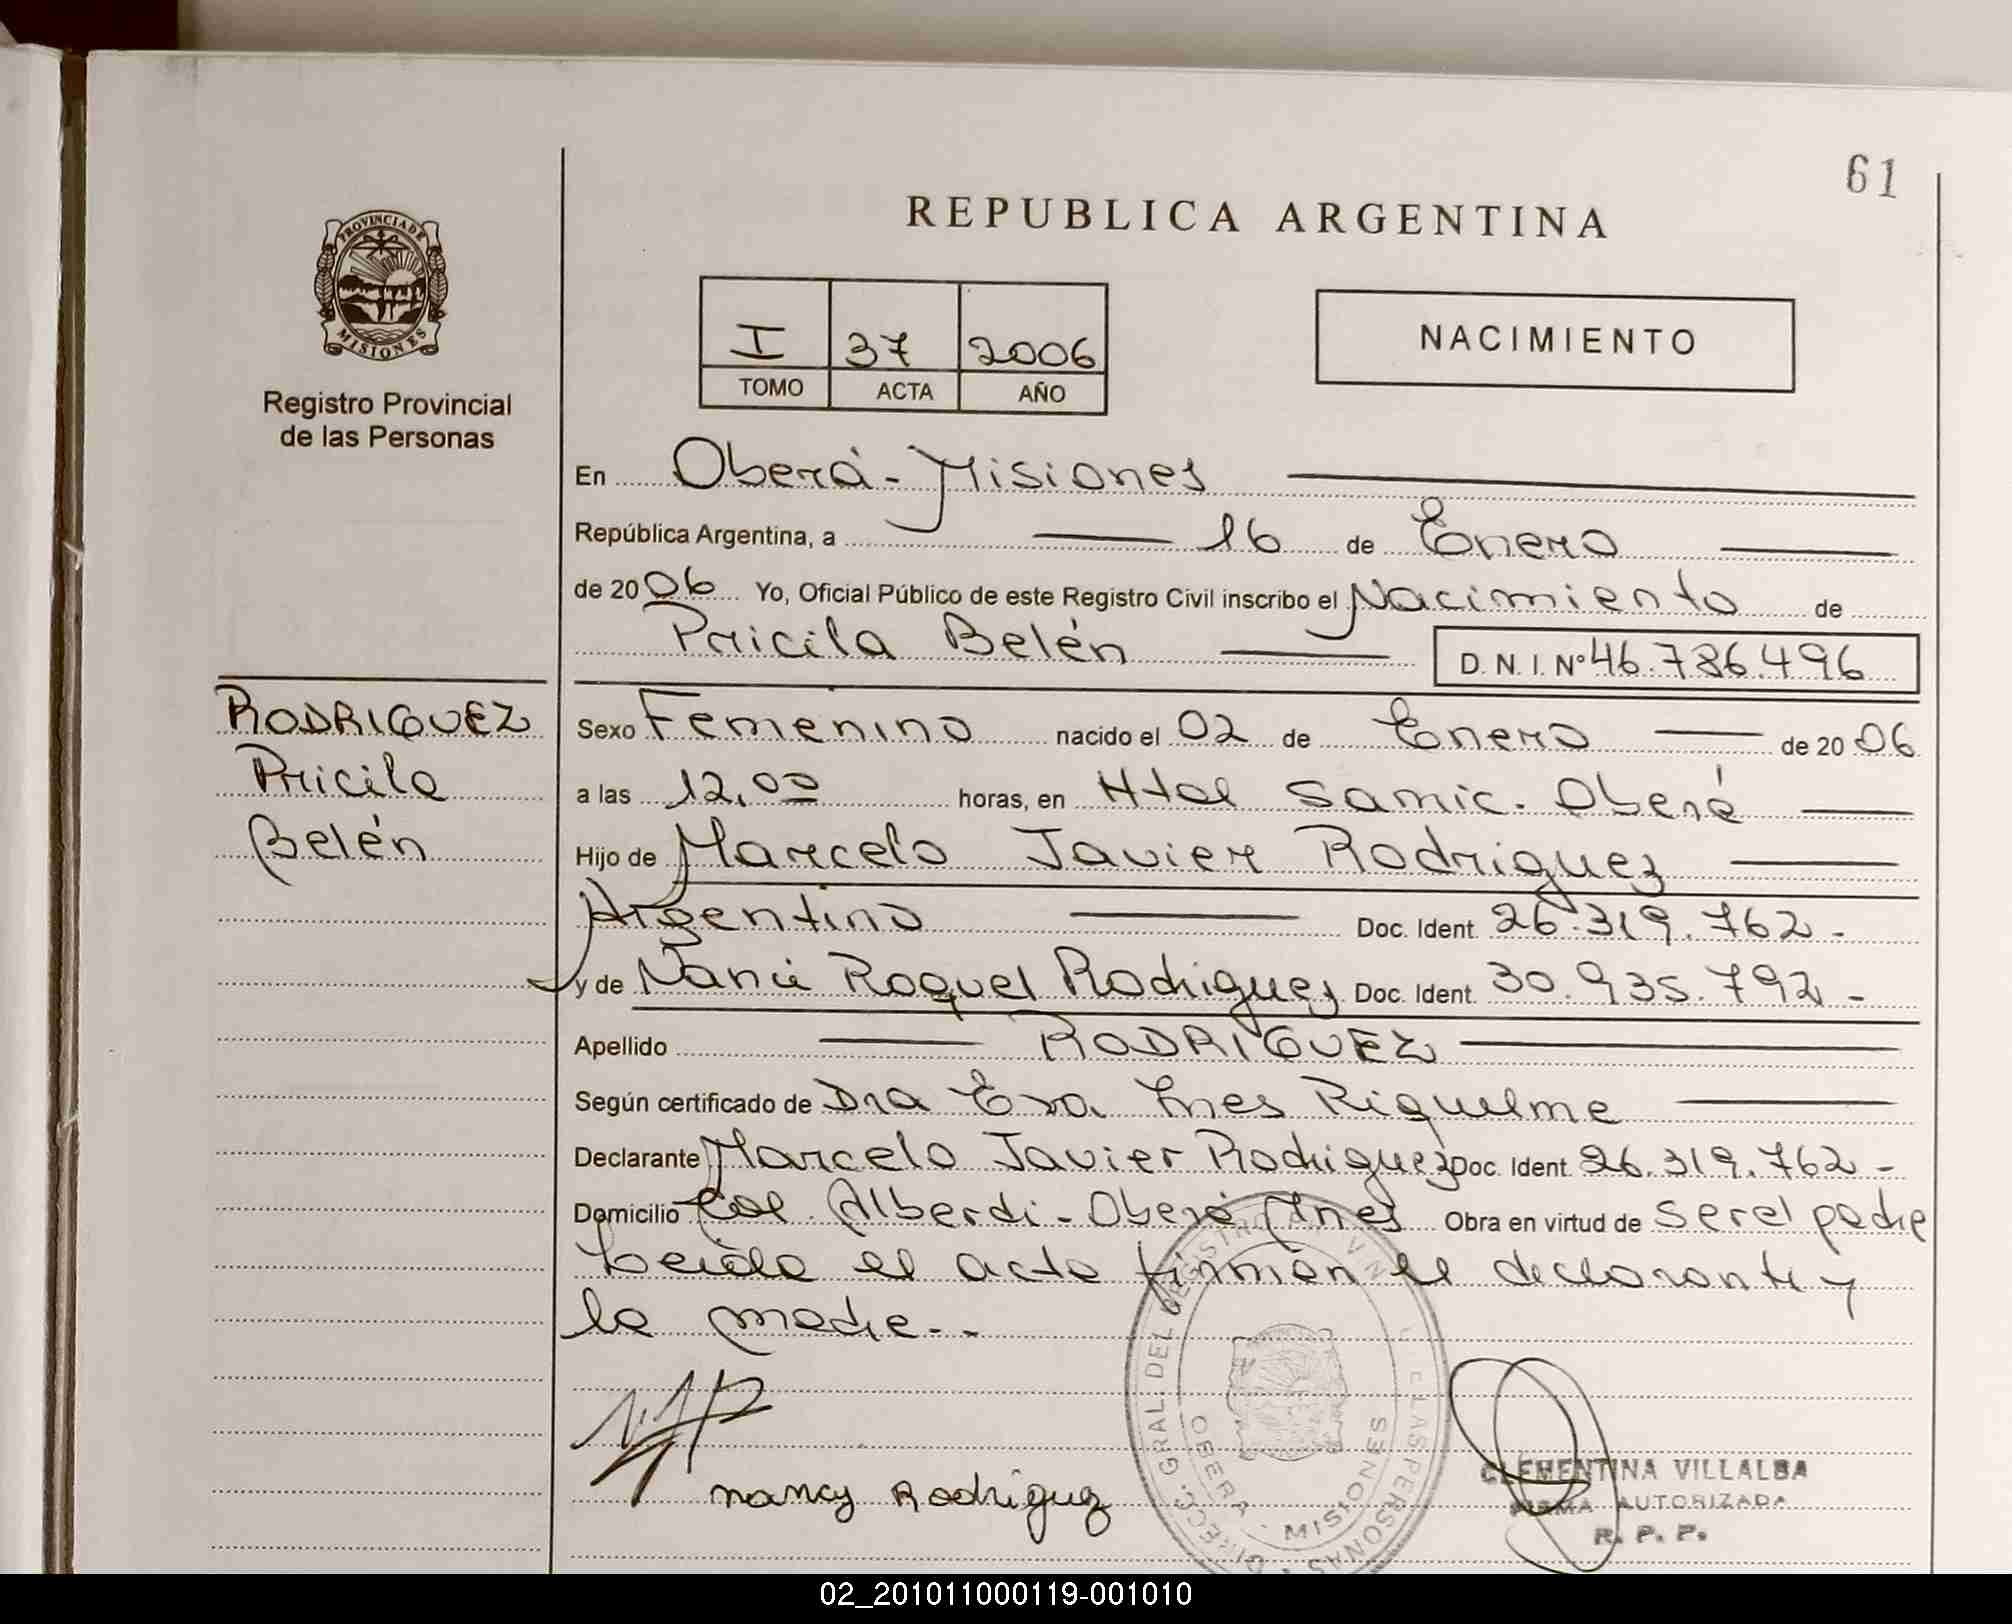 61
REPUBLICA ARGENTINA
PROVINCIA DE
MISIONES
Registro Provincial
de las Personas
I 37 2006
TOMO ACTA AÑO
NACIMIENTO
En Oberá - Misiones
República Argentina, a 16 de Enero
de 2006 Yo, Oficial Público de este Registro Civil inscribo el Nacimiento de
Pricila Belén D. N. I. Nº 46.786.496
RODRIGUEZ
Pricila
Belén
Sexo Femenino nacido el 02 de Enero de 2006
a las 12,00 horas, en Htal Samic. Oberá
Hijo de Marcelo Javier Rodriguez
Argentino Doc. Ident. 26.319.762-
y de Raquel Rodriguez Doc. Ident. 30.935.792-
Apellido RODRIGUEZ
Según certificado de Dra Eva Ines Riquelme
Declarante Marcelo Javier Rodriguez Doc. Ident. 26.319.762-
Domicilio Col. Alberdi - Oberá Mnes Obra en virtud de ser el padre
Leida el acta firman el declarante y
la madre.-
Nancy Rodriguez
DIRECC. GRAL. DEL REGISTRO PROVINCIAL DE LAS PERSONAS
OBERA - MISIONES
CLEMENTINA VILLALBA
FIRMA AUTORIZADA
R. P. P.
02_201011000119-001010